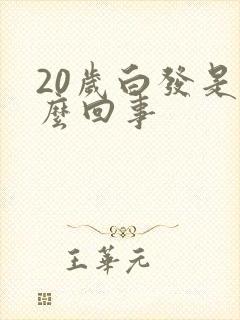 20歲白發是
麼回事
王華元